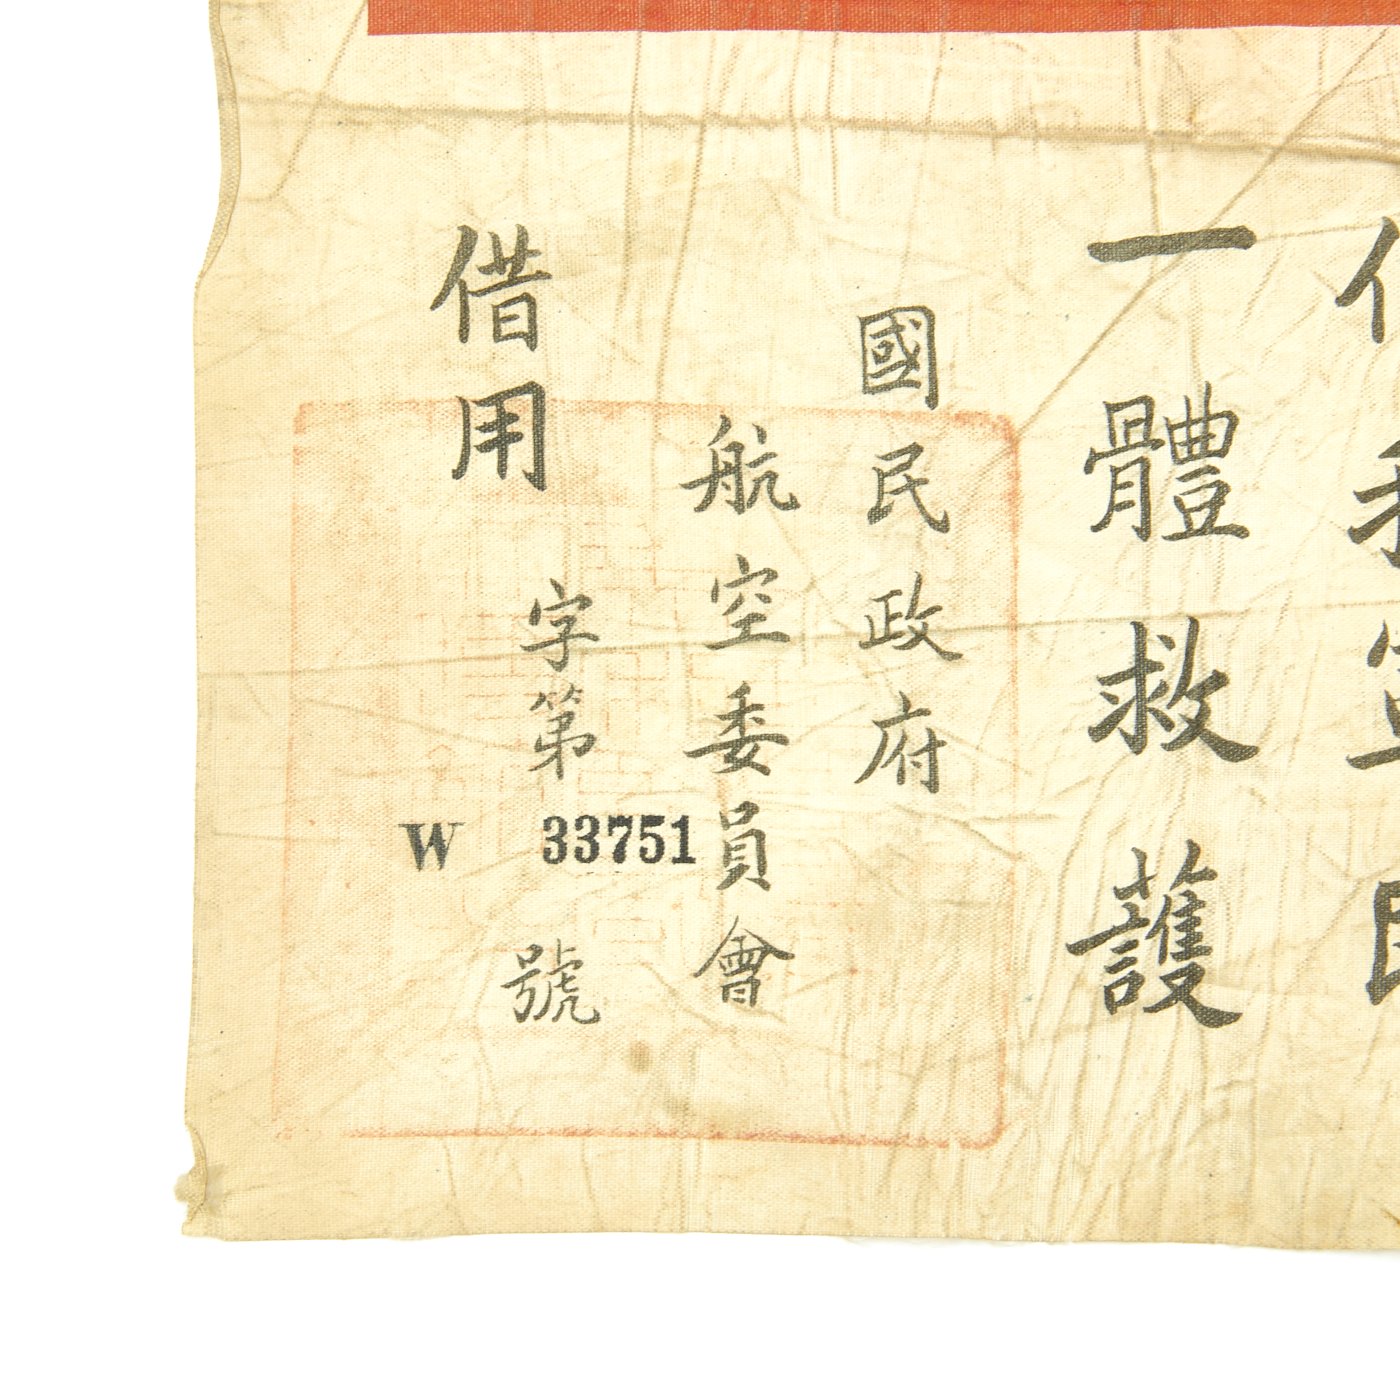 一體救護
國民政府
航空委員會
字第
W 33751
號
借用